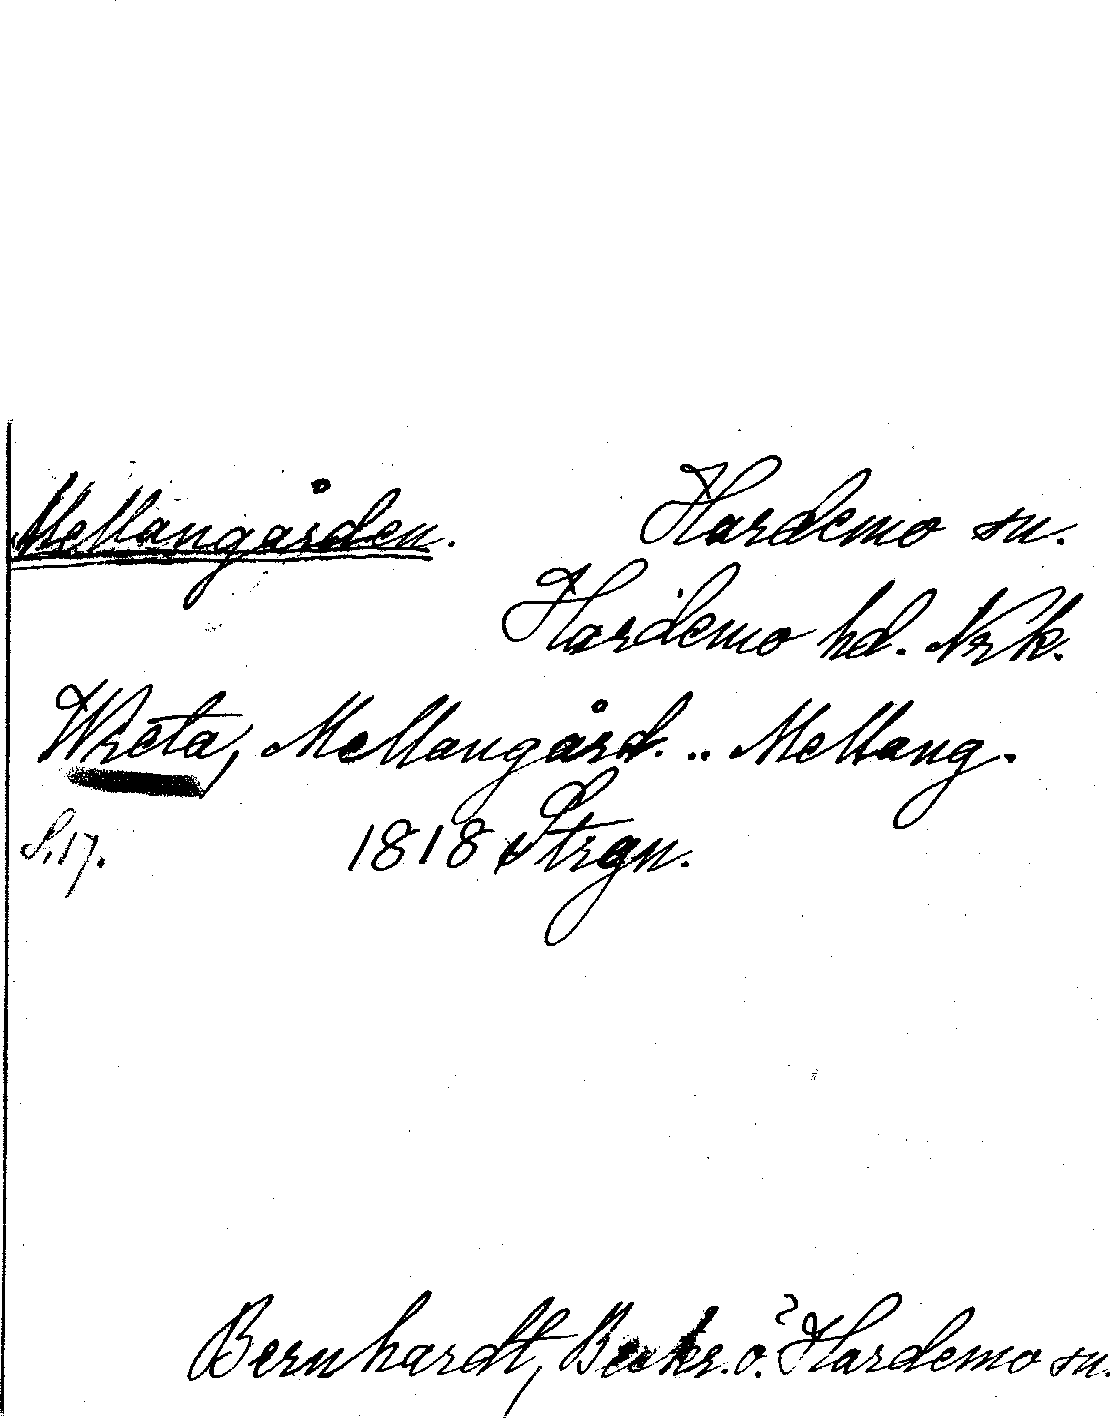 Mellangården. Hardemo sn.
Hardemo hd. Nrk.
Wreta, Mellangård. .. Mellang.
S. 17. 1818 Strgn.
Bernhardt, Beskr. ö. Hardemo sn.